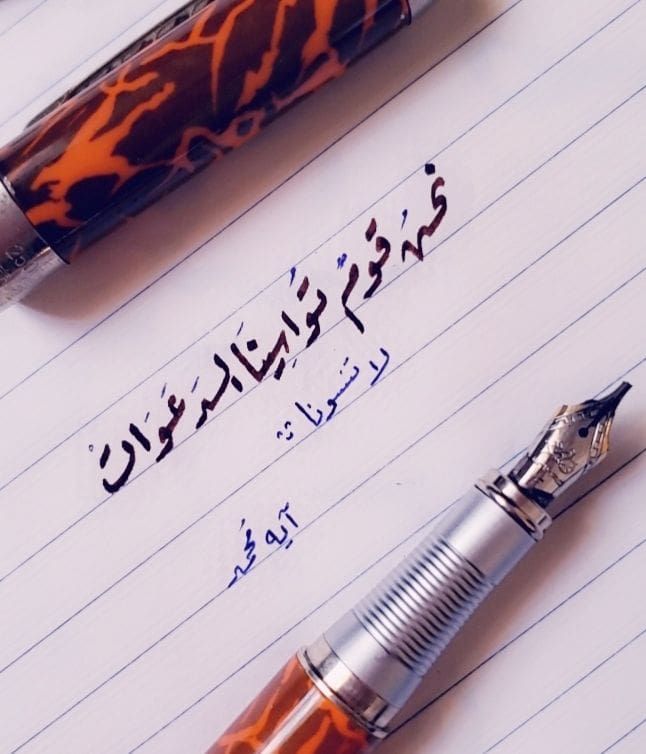 نحنُ قومٌ تُواسِينَا الدَعَوَاتْ
لا تنسونا ""
آيه مُحمد